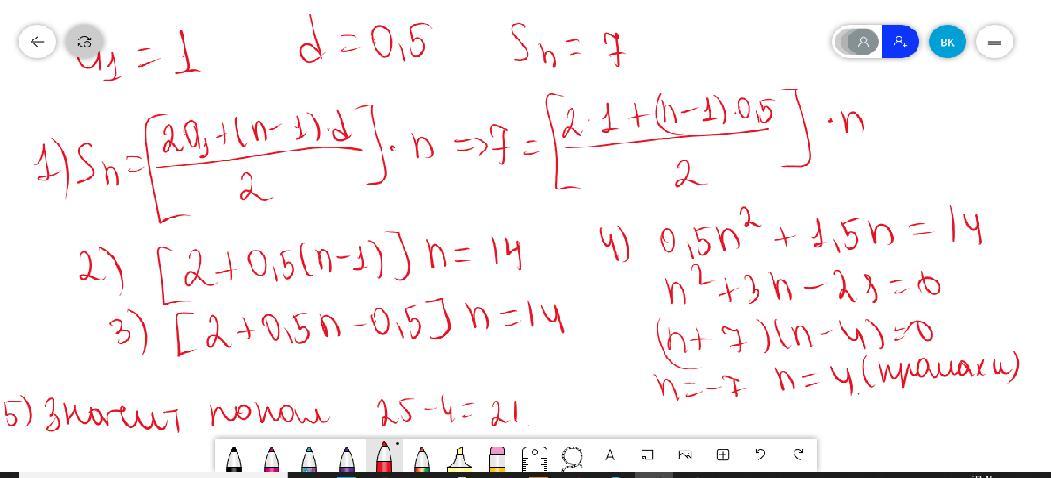 a₁ = 1 d = 0,5 Sₙ = 7
BK
1) Sₙ = [(2a₁ + (n-1)·d)/2] · n => 7 = [(2·1 + (n-1)·0,5)/2] · n
2) [2 + 0,5(n-1)] n = 14
3) [2 + 0,5n - 0,5] n = 14
4) 0,5n² + 1,5n = 14
n² + 3n - 28 = 0
(n + 7)(n - 4) = 0
n = -7 n = 4 (промахи)
5) Значит попал 25 - 4 = 21.
A